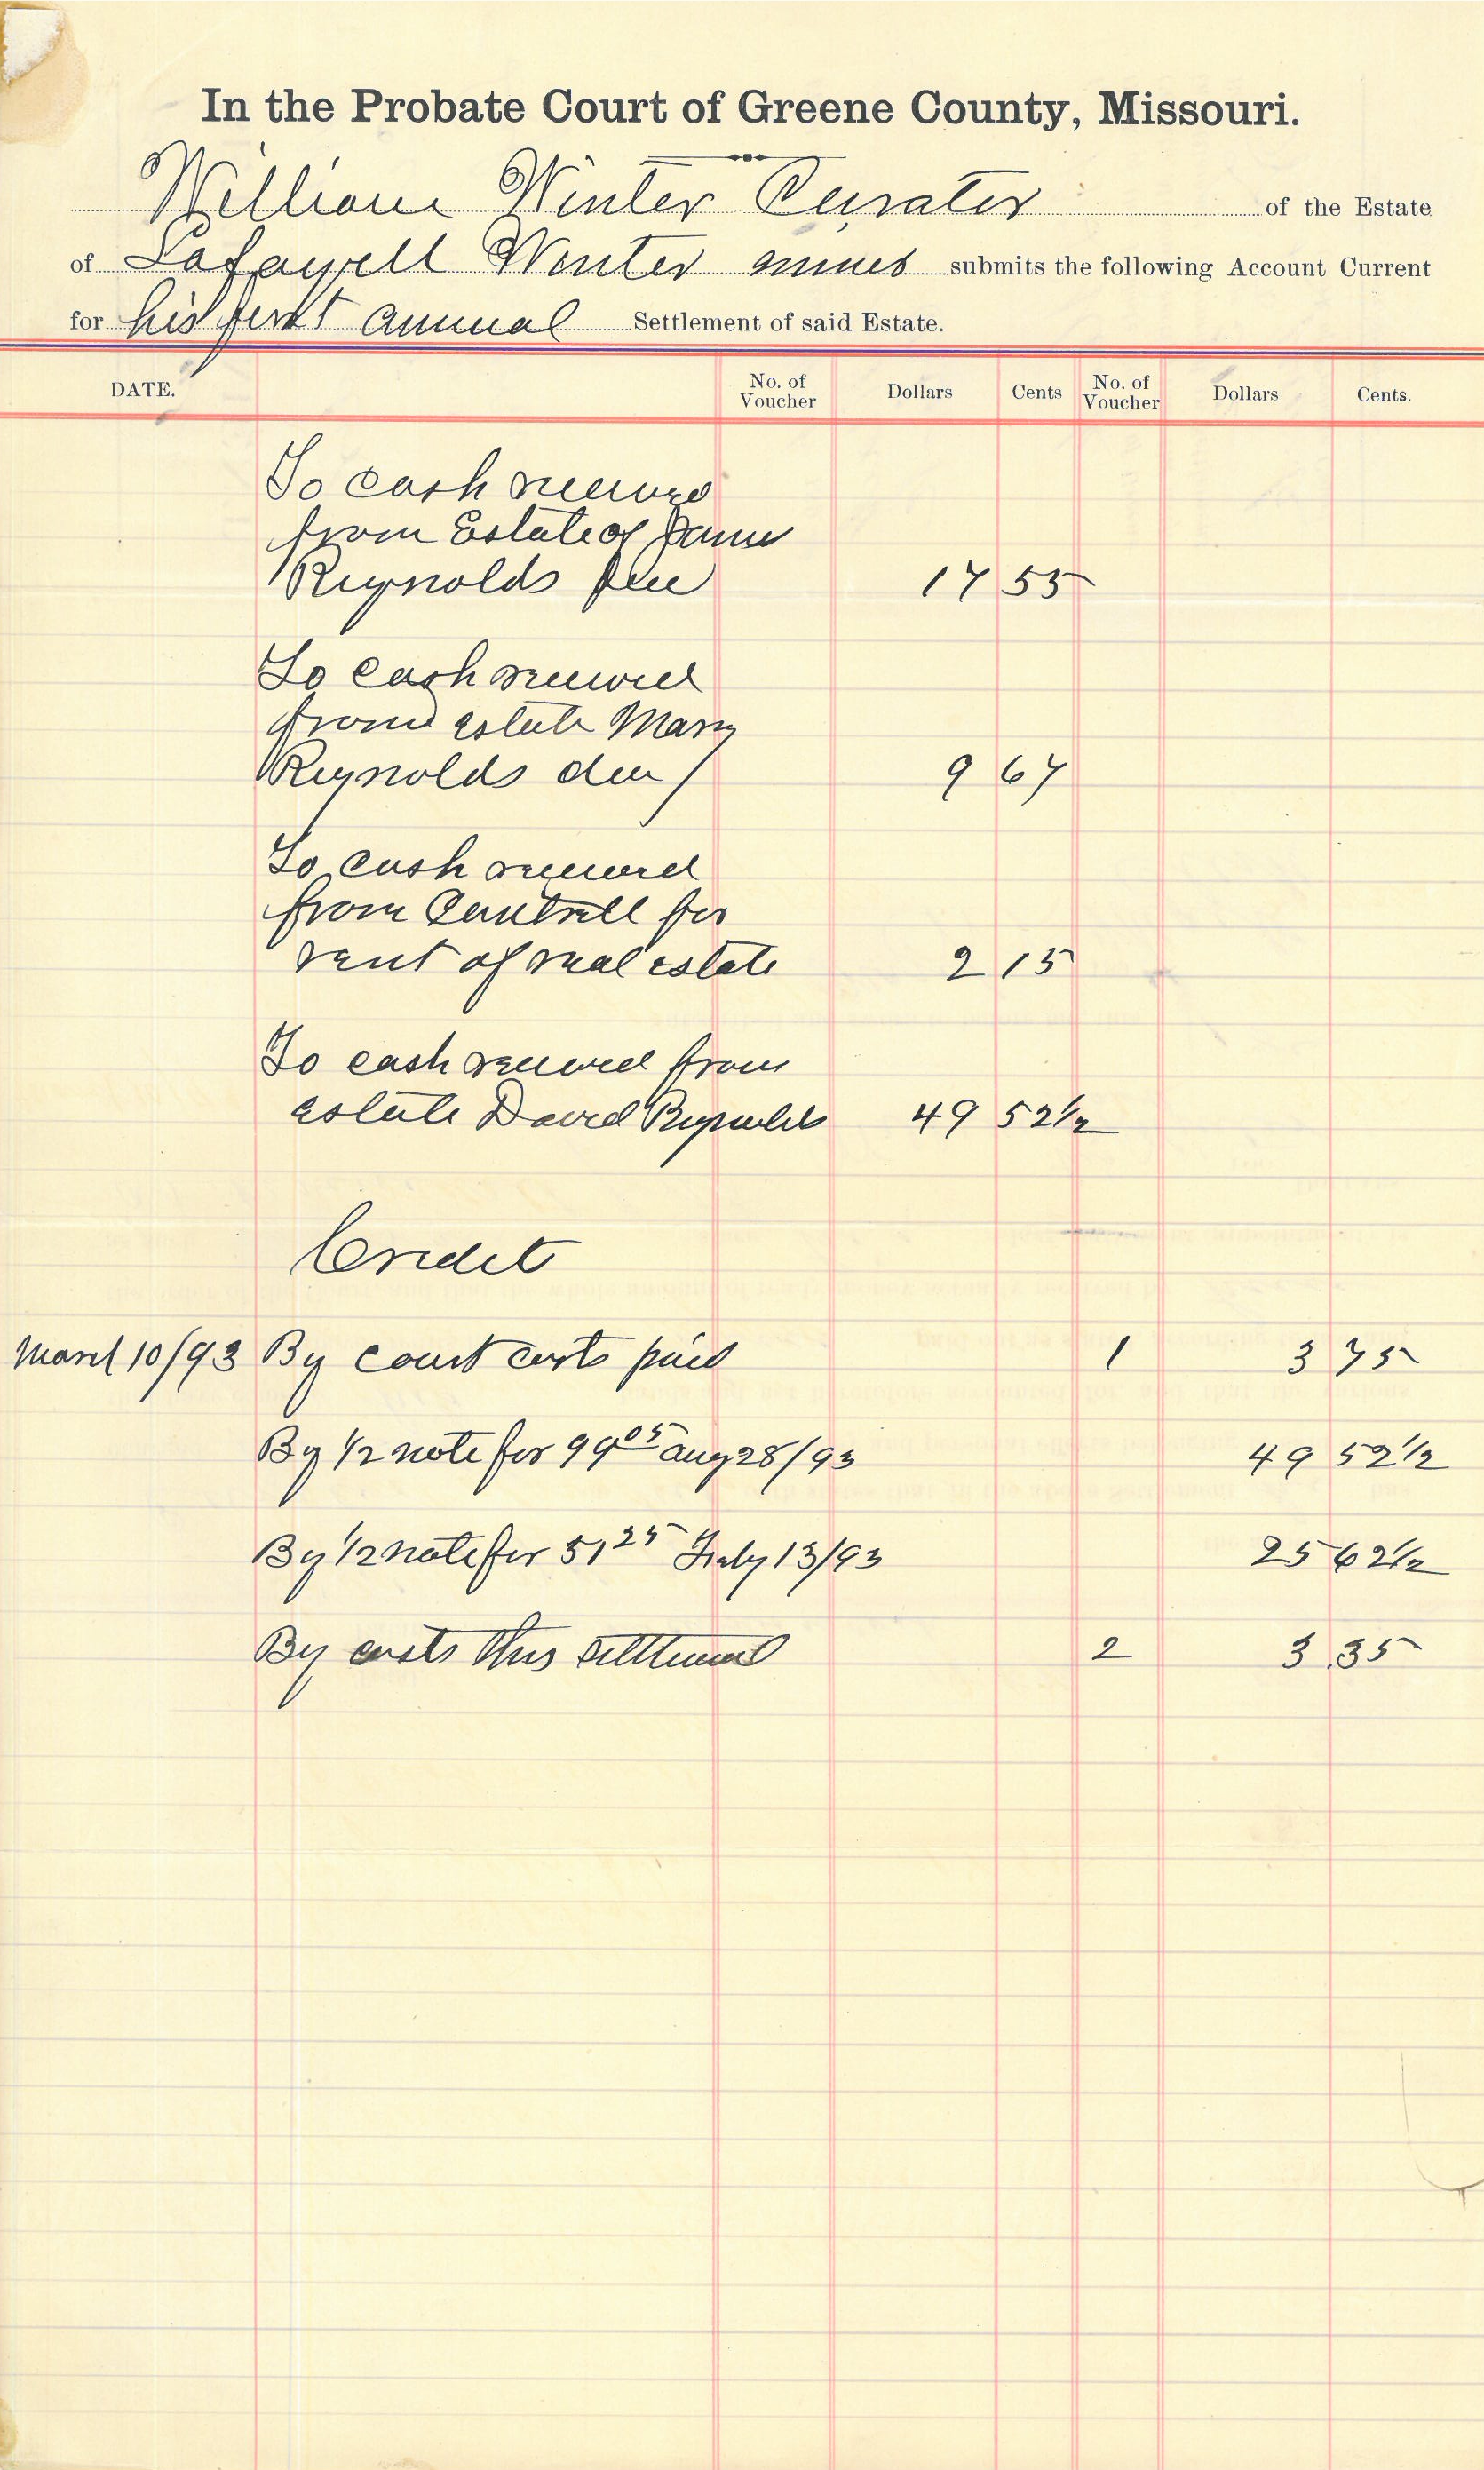 In the Probate Court of Greene County, Missouri.
William Winter Curator of the Estate
of Lafayell Winter minor submits the following Account Current
for his first annual Settlement of said Estate.
DATE. No. of Voucher Dollars Cents No. of Voucher Dollars Cents.
To cash received
from Estate of James
Reynolds Dec 17 55
To cash received
from estate Mary
Reynolds dec 9 67
To cash received
from Cantrell for
rent of real estate 2 15
To cash received from
estate David Reynolds 49 52 1/2
Credit
March 10/93 By court costs paid 1 3 75
By 1/2 note for 99 05 Aug 28/93 49 52 1/2
By 1/2 note for 51 25 July 13/93 25 62 1/2
By costs this settlement 2 3.35